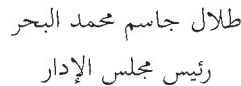 طلال جاسم محمد البحر
رئيس مجلس الإدار